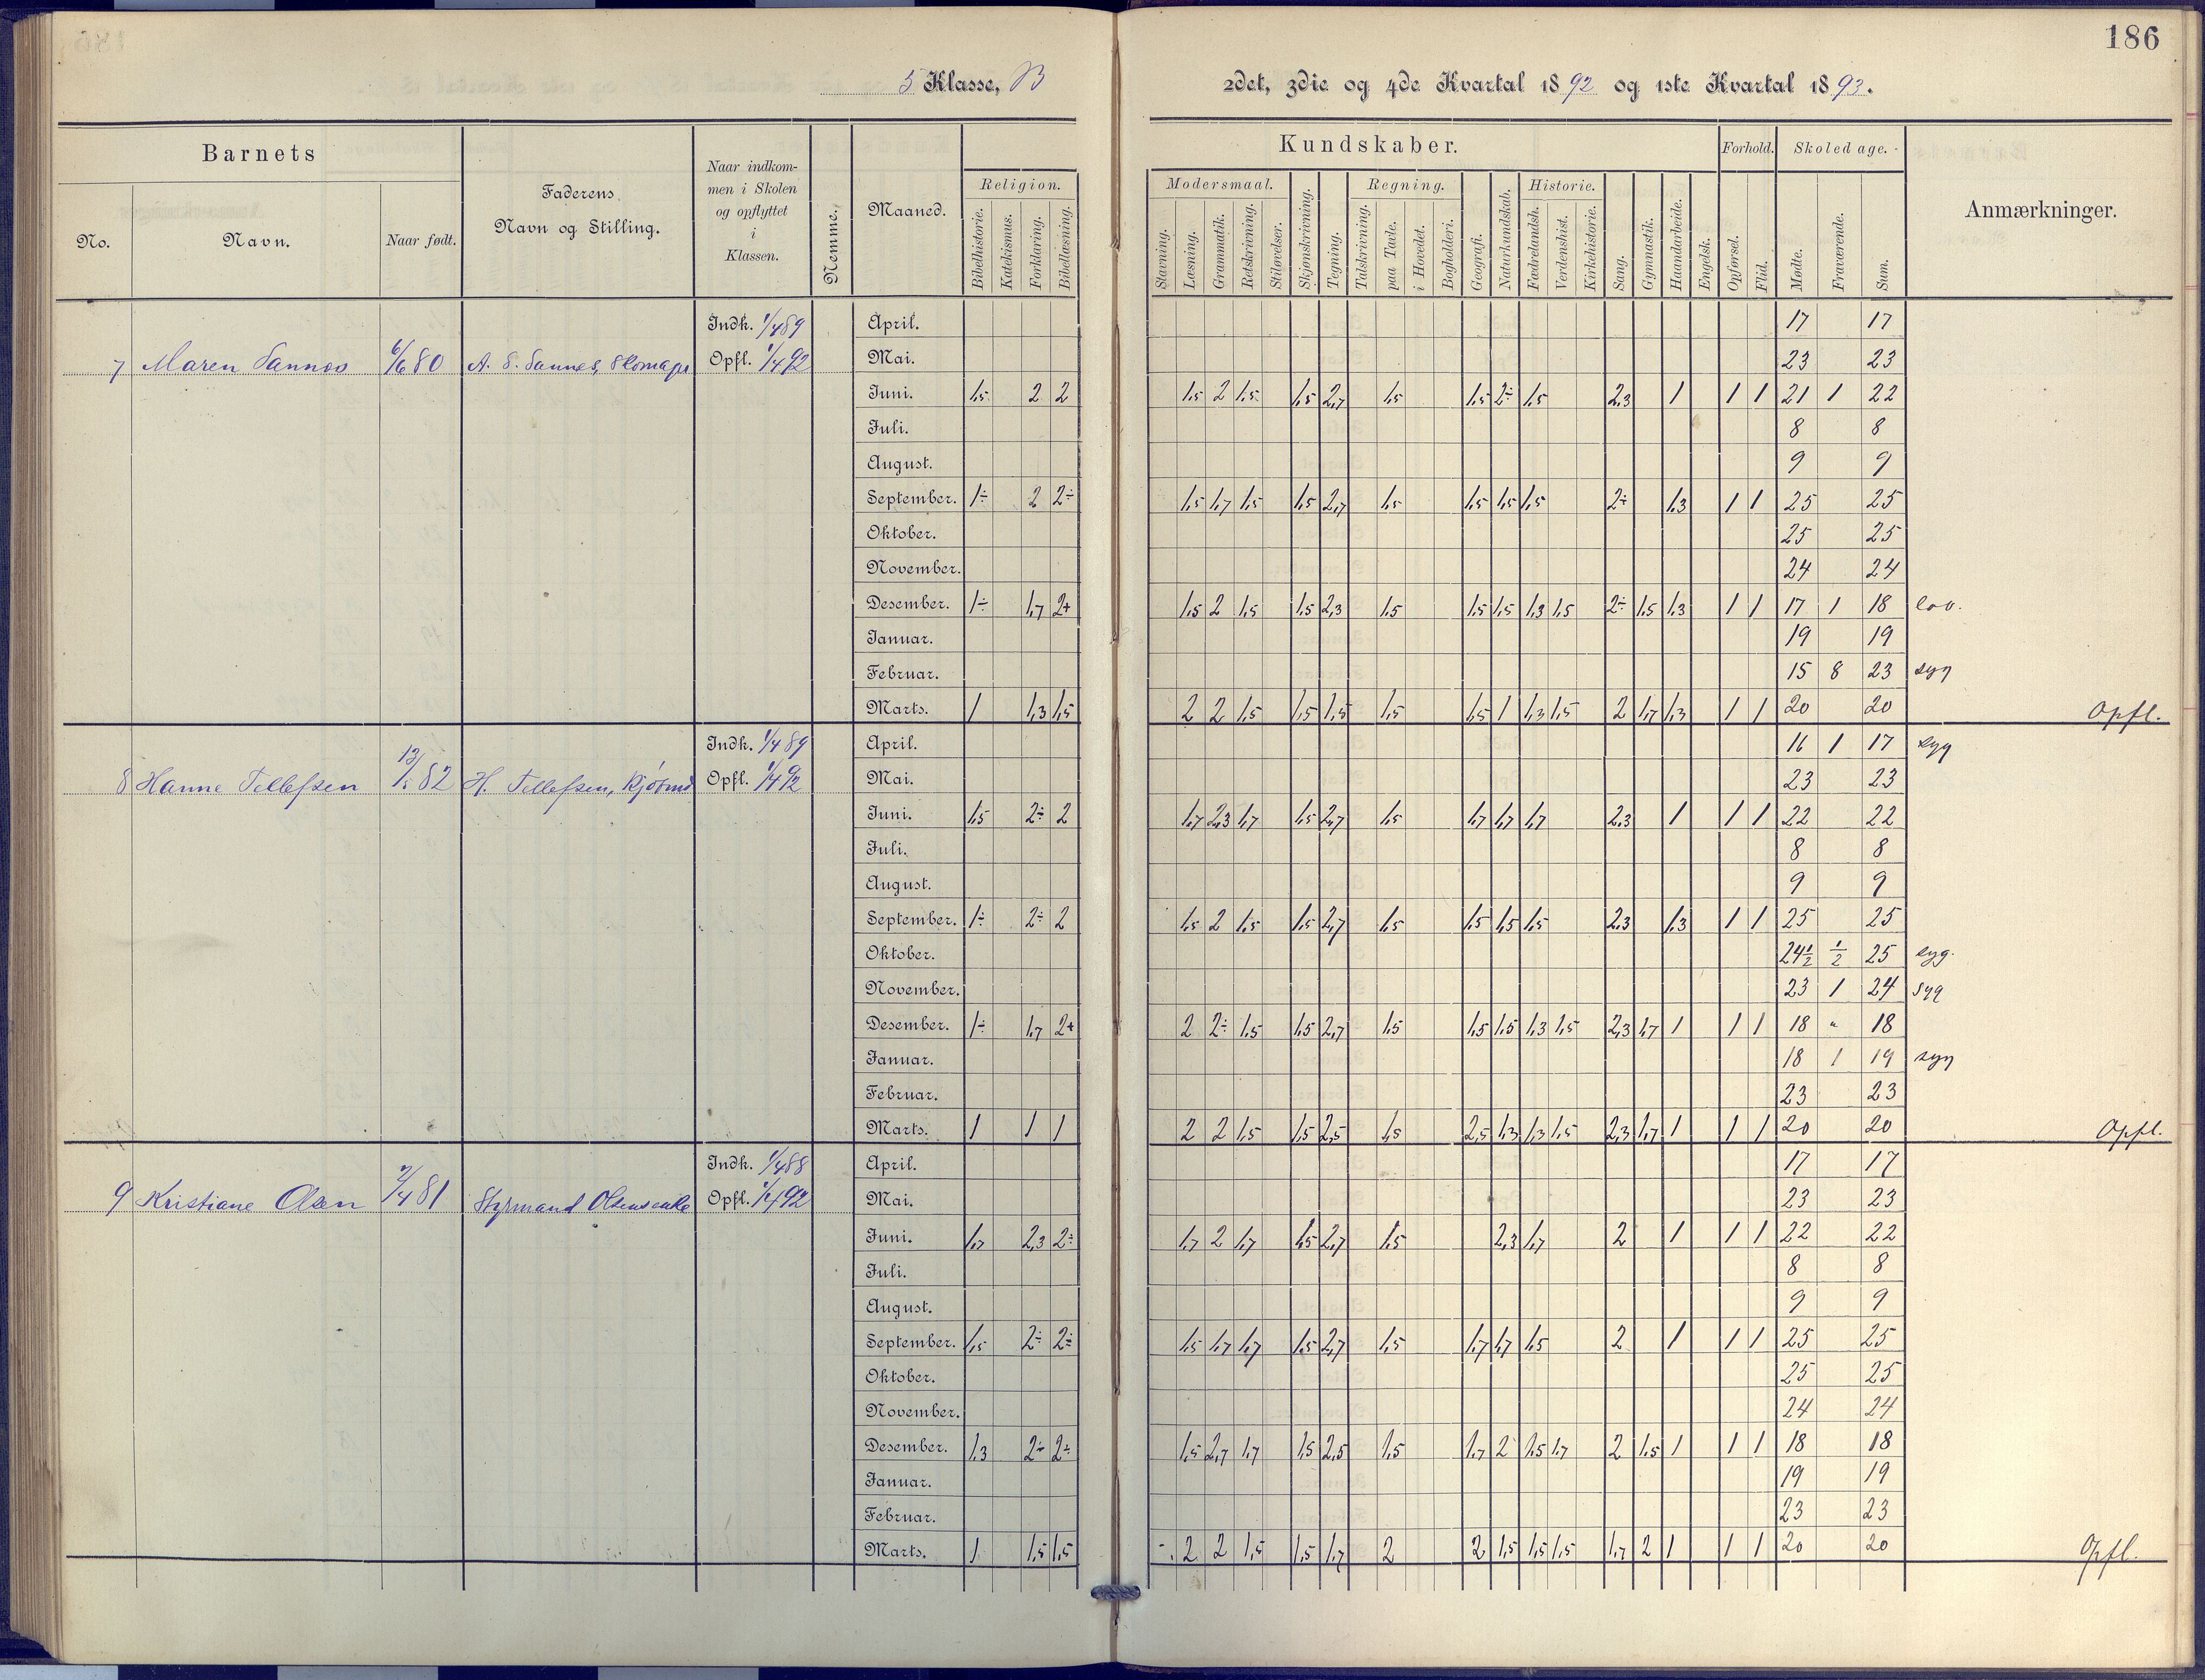 186
5 Klasse, B
2det, 3die og 4de Kvartal 1892 og 1ste Kvartal 1893.
Barnets
Faderens Navn og Stilling.
Naar indkommen i Skolen og opflyttet i Klassen.
Nemme.
Maaned.
Kundskaber.
Forhold.
Skoledage.
Anmærkninger.
No.
Navn.
Naar født.
Religion.
Modersmaal.
Regning.
Historie.
Bibelhistorie. Katekismus. Forklaring. Bibellæsning.
Stavning. Læsning. Grammatik. Retskrivning. Stiløvelser. Skjønskrivning. Tegning. Talskrivning. paa Tavle. i Hovedet. Bogholderi. Geografi. Naturkundskab. Fædrelandsh. Verdenshist. Kirkehistorie. Sang. Gymnastik. Haandarbeide. Engelsk. Opførsel. Flid. Mødte. Fraværende. Sum.
Indk. 1/4 89 April. 17 17
7 Maren Sannes 6/6 80 A. S. Sannes, Opfl. 1/4 92 Mai. 23 23
Juni. 1,5 2 2 1,5 2 1,5 1,5 2,7 1,5 1,5 2÷ 1,5 2,3 1 1 1 21 1 22
Juli. 8 8
August. 9 9
September. 1÷ 2 2÷ 1,5 1,7 1,5 1,5 2,7 1,5 1,5 1,5 1,5 2÷ 1,3 1 1 25 25
Oktober. 25 25
November. 24 24
Desember. 1÷ 1,7 2+ 1,5 2 1,5 1,5 2,3 1,5 1,5 1,5 1,3 1,5 2÷ 1,5 1,3 1 1 17 1 18 lov.
Januar. 19 19
Februar. 15 8 23 syg
Marts. 1 1,3 1,5 2 2 1,5 1,5 1,5 1,5 1,5 1 1,3 1,5 2 1,7 1,3 1 1 20 20 Opfl.
Indk. 1/4 89 April. 16 1 17 syg
8 Hanne Tellefsen 82 H. Tellefsen, Kjøbmd Opfl. 1/4 92 Mai. 23 23
Juni. 1,5 2÷ 2 1,7 2,3 1,7 1,5 2,7 1,5 1,7 1,7 1,7 2,3 1 1 1 22 22
Juli. 8 8
August. 9 9
September. 1÷ 2÷ 2 1,5 2 1,5 1,5 2,7 1,5 1,5 1,5 1,5 2,3 1,3 1 1 25 25
Oktober. 24½ ½ 25 syg.
November. 23 1 24 syg
Desember. 1÷ 1,7 2+ 2 2÷ 1,5 1,5 2,7 1,5 1,5 1,5 1,3 1,5 2,3 1,7 1 1 1 18 " 18
Januar. 18 1 19 syg
Februar. 23 23
Marts. 1 1 1 2 2 1,5 1,5 2,5 1,5 2,5 1,3 1,3 1,5 2,3 1,7 1 1 1 20 20 Opfl.
Indk. 1/4 88 April. 17 17
9 Kristiane Olsen 2/4 81 Styrmand Olsens enke Opfl. 1/4 92 Mai. 23 23
Juni. 1,7 2,3 2÷ 1,7 2 1,7 1,5 2,7 1,5 2,3 1,7 2 1 1 1 22 22
Juli. 8 8
August. 9 9
September. 1,5 2÷ 2÷ 1,5 1,7 1,7 1,5 2,7 1,5 1,7 1,7 1,5 2 1 1 1 25 25
Oktober. 25 25
November. 24 24
Desember. 1,3 2÷ 2÷ 1,5 2,7 1,7 1,5 2,5 1,5 1,7 2 1,5 1,7 2 1,5 1 1 1 18 18
Januar. 19 19
Februar. 23 23
Marts. 1 1,5 1,5 2 2 1,5 1,5 1,7 2 2 1,5 1,5 1,5 1,7 2 1 1 1 20 20 Opfl.